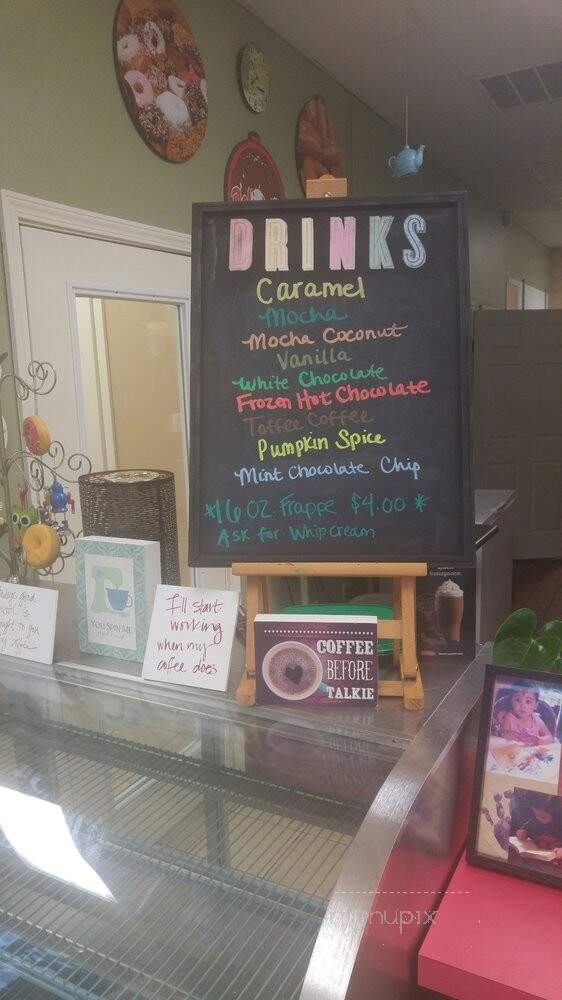 DRINKS
Caramel
Mocha
Mocha Coconut
Vanilla
White Chocolate
Frozen Hot Chocolate
Toffee Coffee
Pumpkin Spice
Mint Chocolate Chip
*16 OZ. Frappe $4.00 *
Ask for Whip cream
YOU SPIN ME
I'll start
working
when my
cofee does
COFFEE
BEFORE
TALKIE
menupix